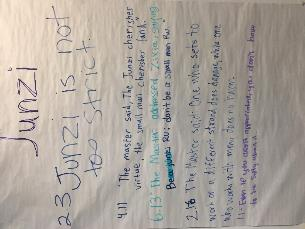 Junzi
23 Junzi is not
too strict.
4.11 "The master said, The Junzi cherishes
virtue, the small man cherishes land."
6.13 The Master advised Zixia, saying
Be a Junzi, don't be a small man
2.16 The Master said: One who sets to
work on a different strand does damage, while one
who works with many does no harm.
1.1
you don't have